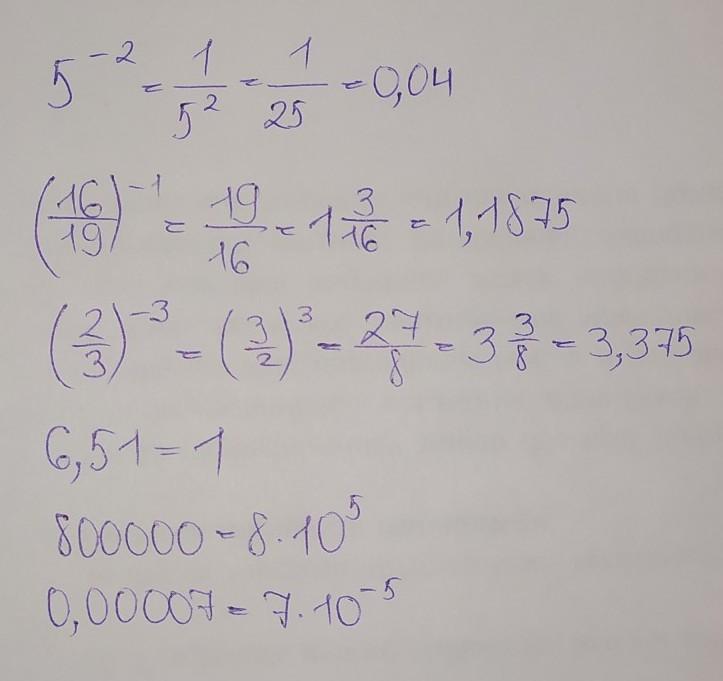 5⁻² = 1/5² = 1/25 = 0,04
(16/19)⁻¹ = 19/16 = 1 3/16 = 1,1875
(2/3)⁻³ = (3/2)³ = 27/8 = 3 3/8 = 3,375
6,51 = 1
800000 = 8·10⁵
0,00007 = 7·10⁻⁵